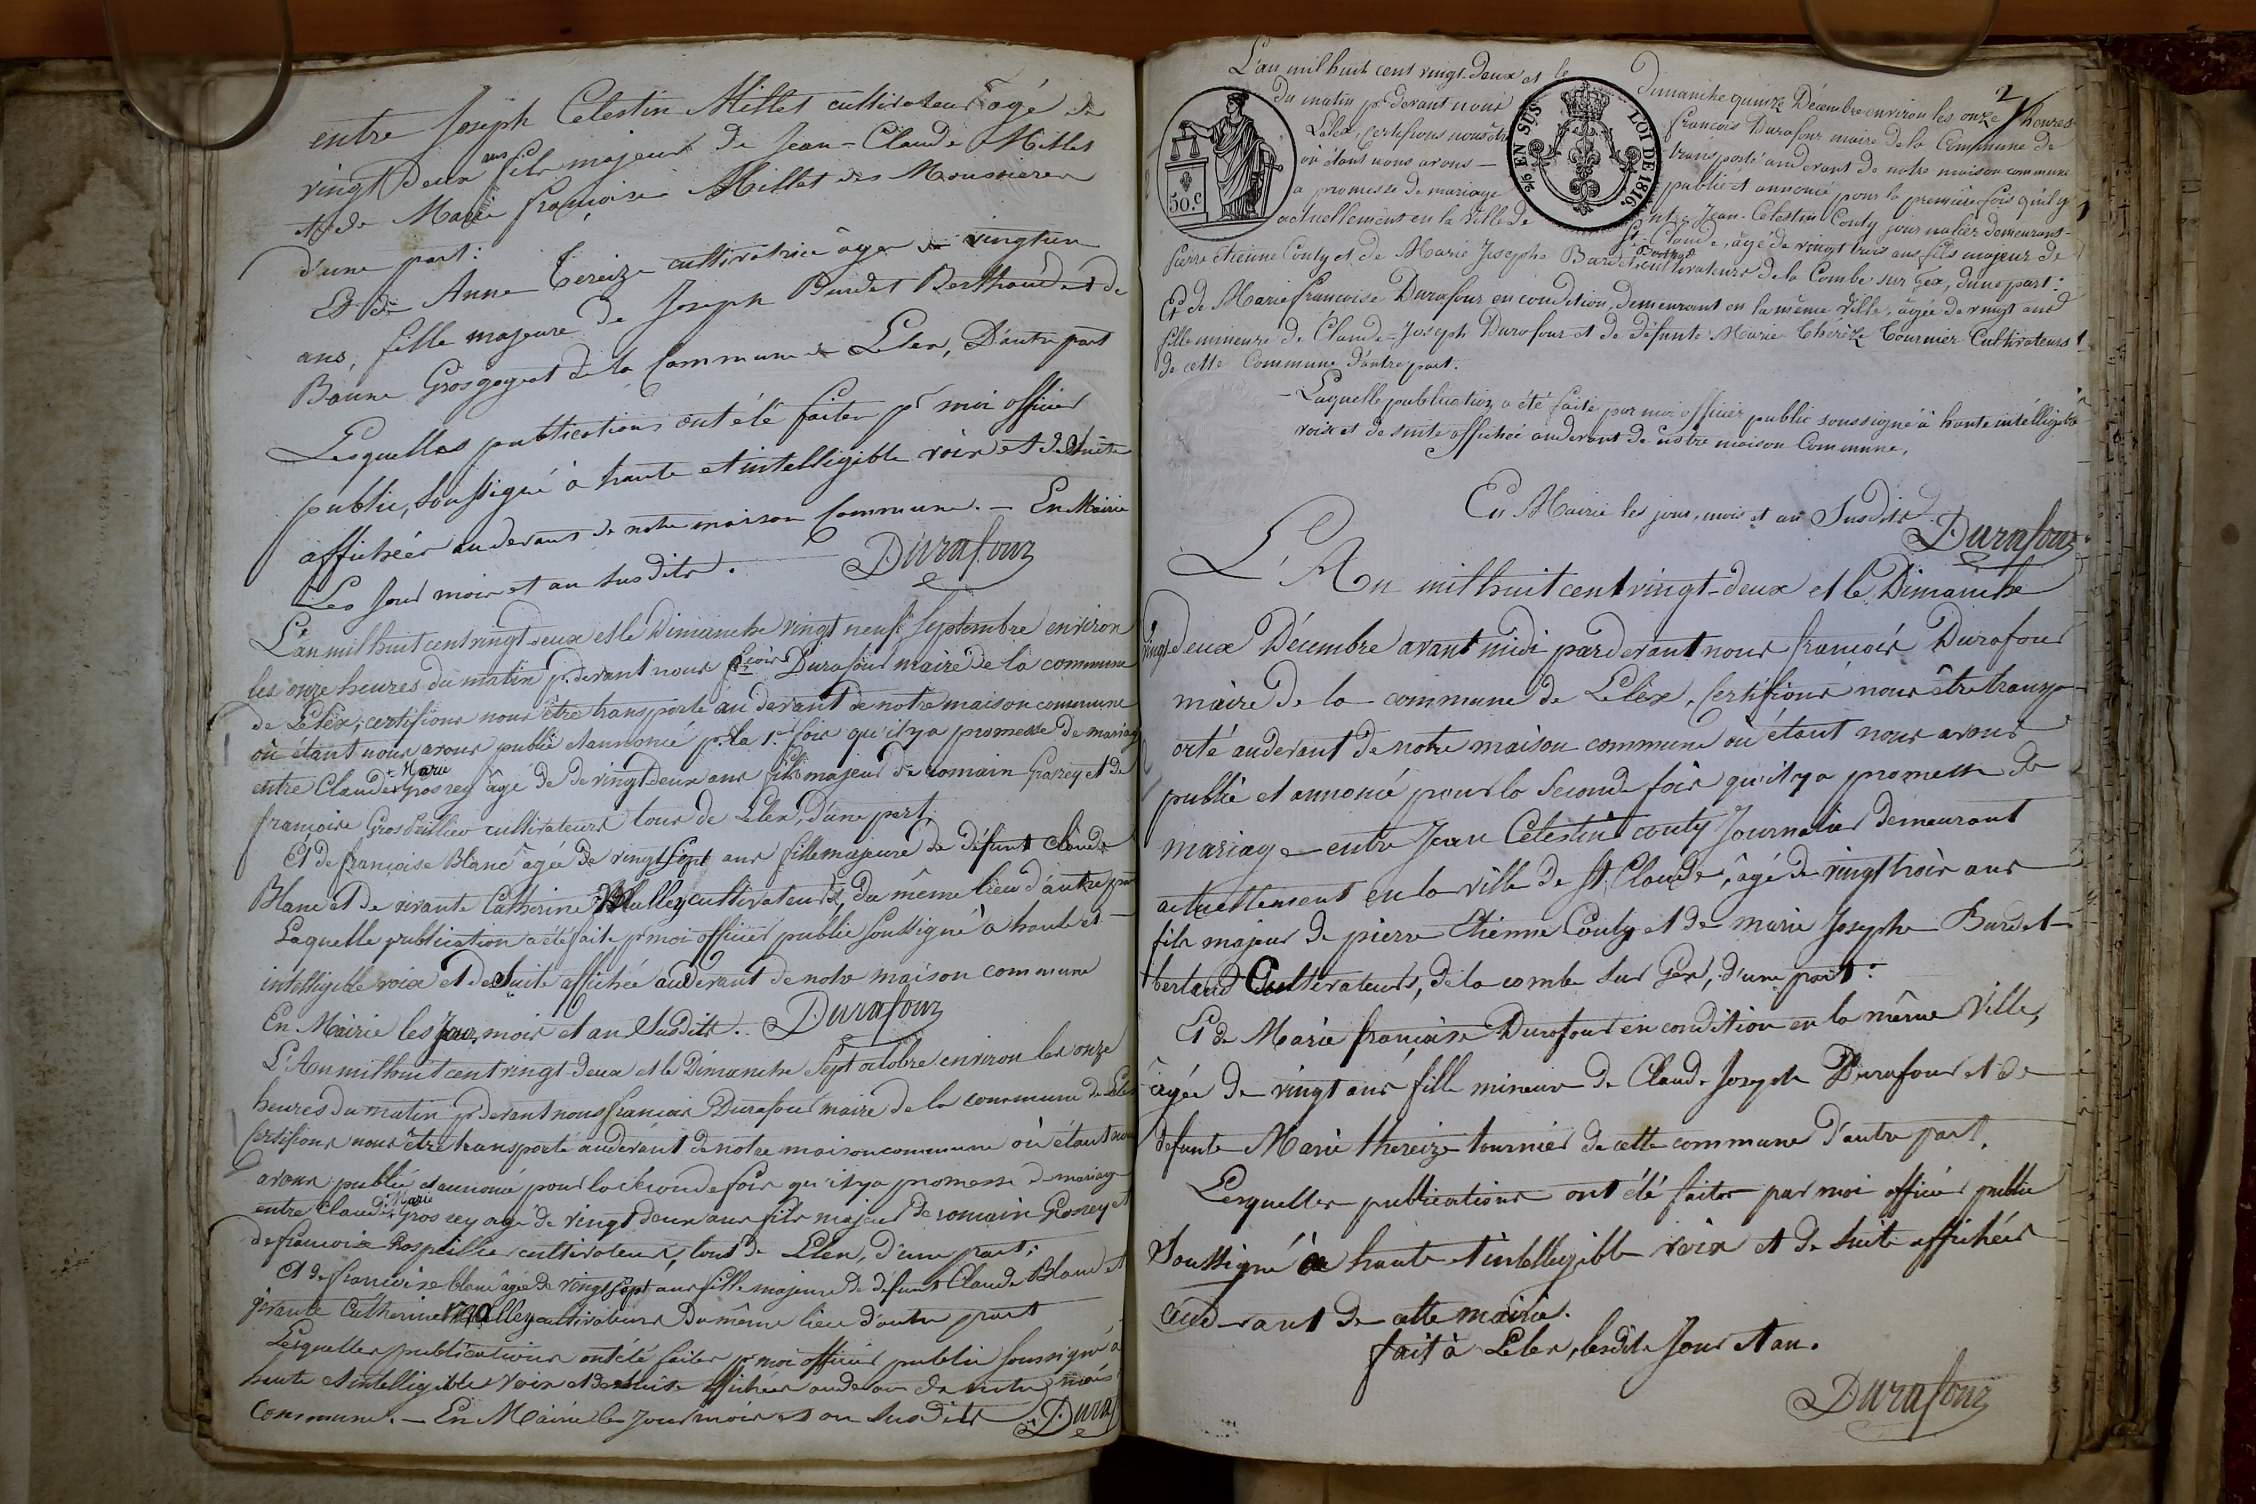 entre Joseph Celestin Millet cultivateur âgé de
vingt deux ans fils majeur de Jean-Claude Millet
et de Marie françoise Millet des Moussieres
d'une part:
Et de Anne Tereize cultivatrice âgee de vingt un
ans, fille majeure de Joseph Burdet Berthaud et de
Bonne Grosgogeat de la Commune de Lelex, D'autre part
Lesquelles publications ont été faites pr moi officier
public, soussigné à haute et intelligible voix et de suite
affichées au devant de notre maison Commune. — En Mairie
Les Jour mois et an susdits. Durafour
L'an mil huit cent vingt deux et le Dimanche vingt neuf Septembre environ
les onze heures du matin pr. devant nous fcois Durafour maire de la commune
de Lélex, certifions nous être transporté au devant de notre maison commune
où étant nous avons publié et annoncé pr. la 1re fois qu'il y a promesse de mariage
entre Claude Marie Grosrey âgé de de vingt deux ans fils majeur de romain Grosrey et de
françoise Grospellier cultivateurs tous de Lelex, D'une part,
Et de françoise Blanc âgée de vingt sept ans fille majeure de défunt Claude
Blanc et de vivante Catherine Mulley cultivateurs, du même lieu d'autre part
Laquelle publication a été faite pr moi officier public soussigné à haute et
intelligible voix et de suite affichée au devant de notre maison commune
En Mairie les Jour, mois et an Susdits. Durafour
L'An mil huit cent vingt-deux et le Dimanche Sept octobre environ les onze
heures du matin pr devant nous françois Durafour maire de la commune de Lelex
Certifions nous être transporté au devant de notre maison commune où étant nous
avons publié et annoncé pour la séconde fois qu'il y a promesse de mariage
entre Claude Marie Grosrey agé de vingt deux ans fils majeur de romain Grosrey et
de françoise Grospellier cultivateurs, tous de Lelex, d'une part;
Et de françoise blanc âgée de vingt sept ans fille majeure de défunt Claude Blanc et
vivante Catherine cultivateurs du même lieu d'autre part
Lesquelles publications ont été faites pr moi officier public soussigné à
haute et intelligible voix et de suite affichées au devant de notre mais
commune. — En Mairie les Jour mois et an Susdits Duraf
2
L'an mil huit cent vingt-deux et le dimanche quinze Décembre environ les onze heures
du matin pr. devant nous françois Durafour maire de la Commune de
Lélex, certifions nous être transporté au devant de notre maison commune
où étant nous avons — publié et annoncé pour la première fois qu'il y
a promesse de mariage entre Jean-Célestin Couty journalier demeurant
actuellement en la ville de St. Claude, âgé de vingt trois ans fils majeur de
pierre étienne Couty et de Marie Josephe Burdet cultivateurs de la Combe sur Gex, d'une part:
Et de Marie françoise Durafour en condition, demeurant en la même ville, âgée de vingt ans
fille mineure de Claude-Joseph Durafour et de défunte Marie Thérèze Tournier Cultivateurs
de cette Commune d'autre part.
Laquelle publication a été faite par moi officier public soussigné à haute intélligible
voix et de suite affichée au devant de notre maison Commune,
En Mairie les jour, mois et an Susdits
Durafour
50.c
26 EN SUS
LOI DE 1816.
L'An mil huit cent vingt-deux et le Dimanche
vingt deux Décembre avant midi pardevant nous françois Durafour
maire de la commune de Lélex, Certifions nous être transp-
orté au devant de notre maison commune où étant nous avons
publié et annoncé pour la Seconde fois qu'il y a promesse de
mariage entre Jean Célestin couty Journalier demeurant
actuellement en la ville de St. Claude, âgé de vingt trois ans
fils majeur de pierre Etienne Couty et de marie Josephe Burdet
bertaud Cultivateurs, de la combe sur Gex, d'une part:
Et de Marie françoise Durafour en condition en la même Ville,
âgée de vingt ans fille mineure de Claude Joseph Durafour et de
défunte Marie thereize tournier de cette commune d'autre part.
Lesquelles publications ont été faites par moi officier public
soussigné à haute et intelligible voix et de suite affichées
au devant de cette mairie.
fait à Lelex, lesdits Jour et an.
Durafour